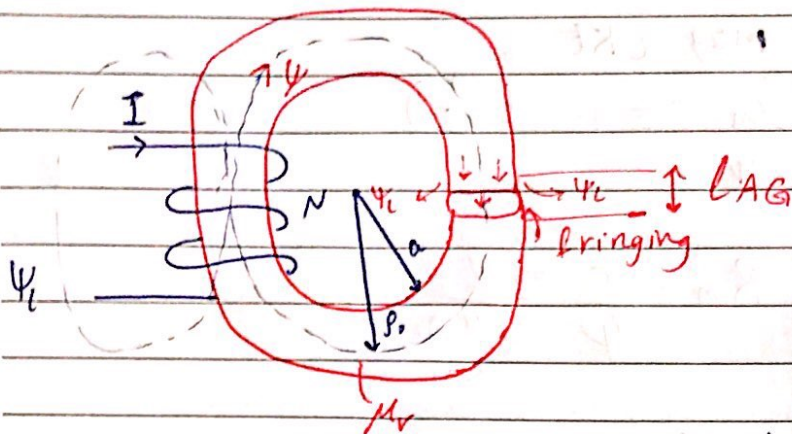 ψ
I
N
ψ_l
ψ_l
l_AG
fringing
a
ρ_o
ψ_l
μ_r